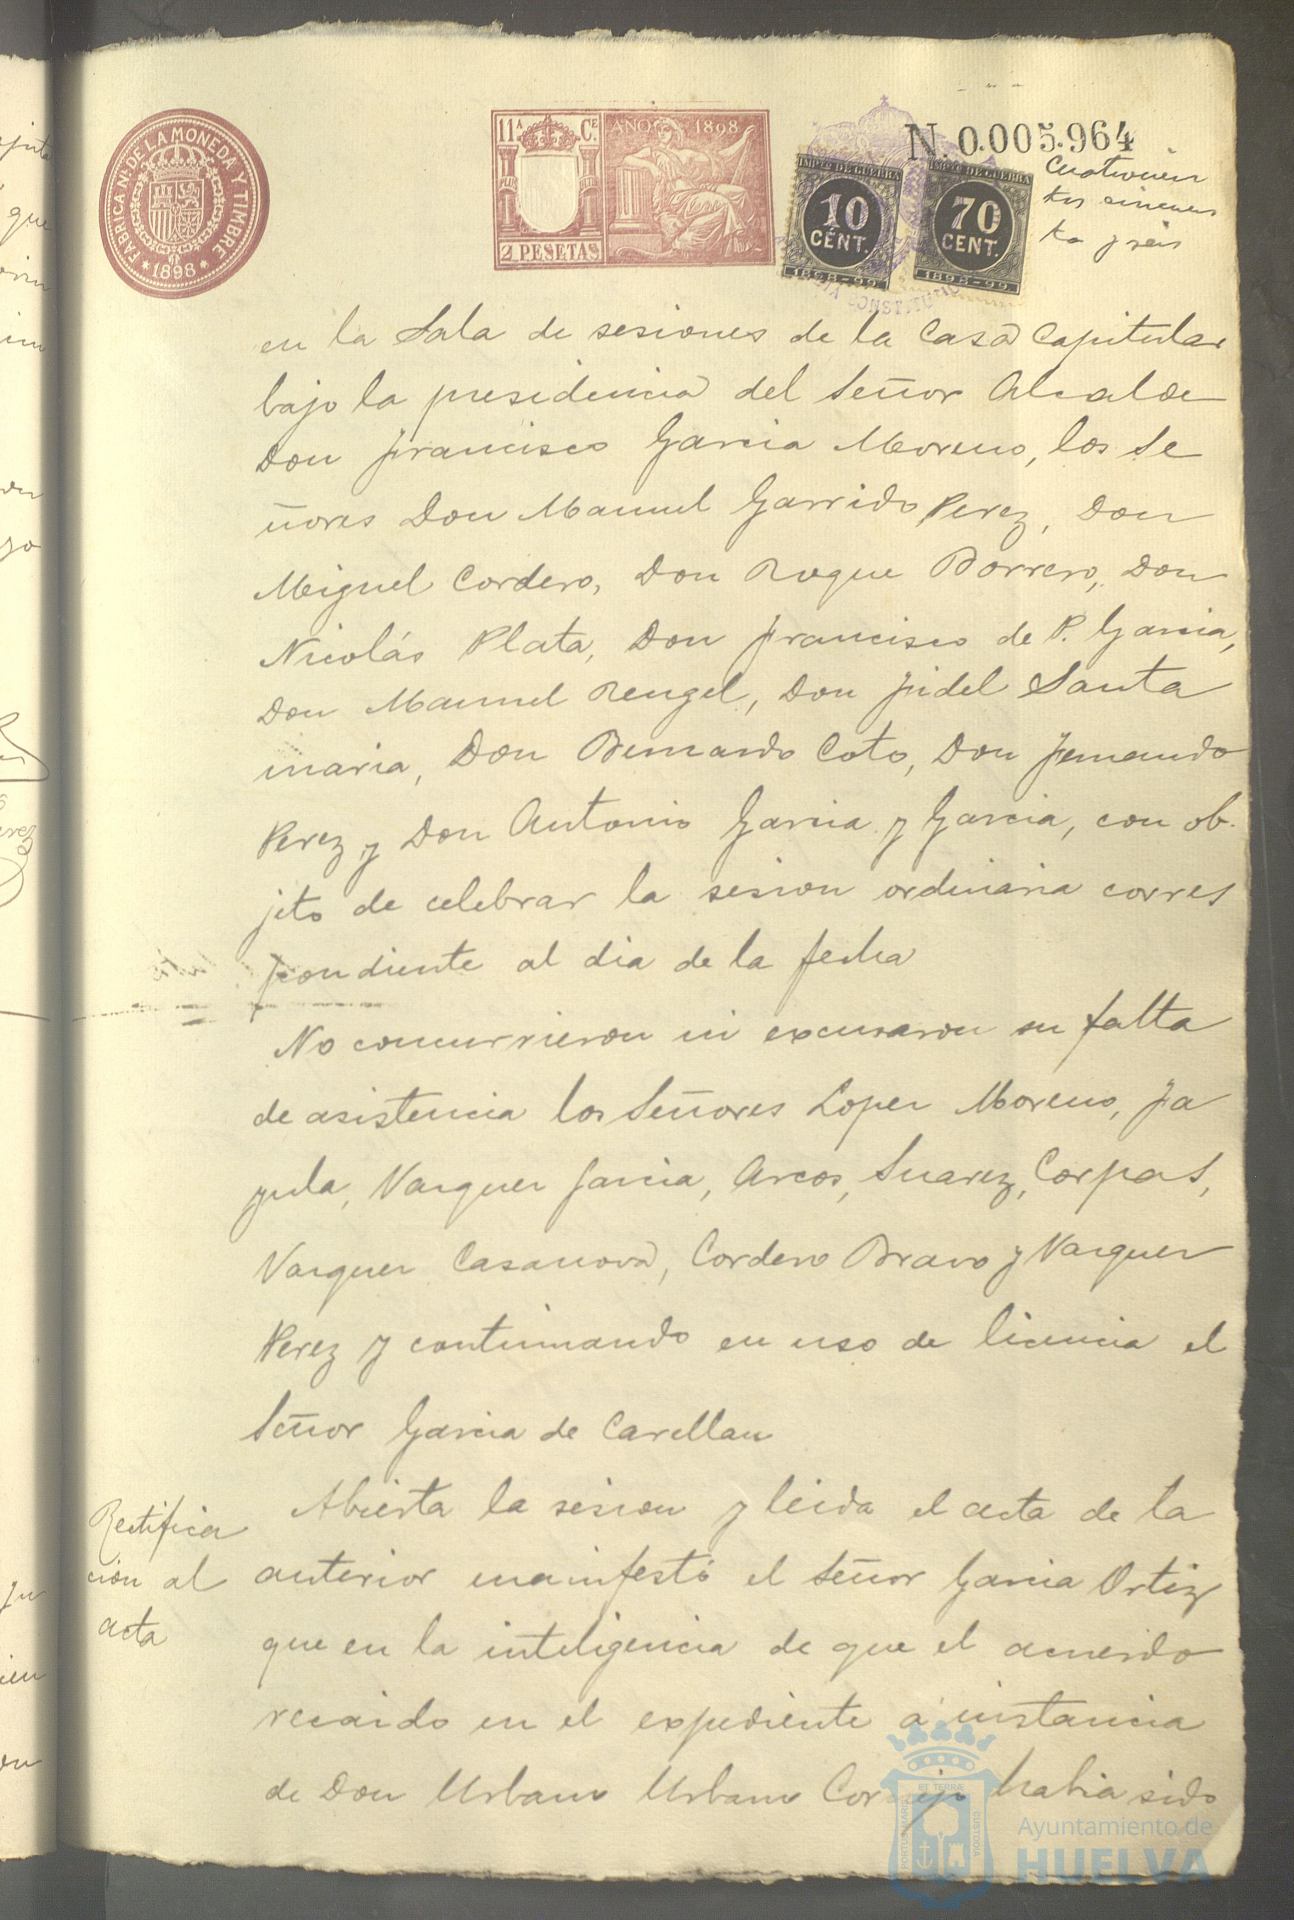 FABRICA NAL DE LA MONEDA Y TIMBRE
* 1898 *
11ª Ce.
AÑO 1898
2 PESETAS
N. 0.005.964
IMPTO DE GUERRA
10
CÉNT.
1898-99
IMPTO DE GUERRA
70
CENT.
1898-99
Cuatrocien
tos cincuen
ta y seis
en la Sala de sesiones de la Casa Capitular
bajo la presidencia del Señor Alcalde
Don Francisco Garcia Moreno, los Se
ñores Don Manuel Garrido Perez, Don
Miguel Cordero, Don Roque Borrero, Don
Nicolás Plata, Don Francisco de P. Garcia,
Don Manuel Rengel, Don Fidel Santa
maria, Don Bernardo Coto, Don Fernando
Perez y Don Antonio Garcia y Garcia, con ob-
jeto de celebrar la sesion ordinaria corres
pondiente al dia de la fecha
No concurrieron ni excusaron su falta
de asistencia los Señores Lopez Moreno, Ja
Vazquez Garcia, Arcos, Suarez, Corpas,
Vazquez Casanova, Cordero Bravo y Vazquez
Perez y continuando en uso de licencia el
Señor Garcia de Carellan
Rectifica
cion al
acta
Abierta la sesion y leida el acta de la
anterior manifestó el Señor Garcia Ortiz
que en la inteligencia de que el acuerdo
recaido en el expediente á instancia
de Don Urbano Urbano Cornejo habia sido
PORTUS MARIS
ET TERRÆ
CUSTODIA
Ayuntamiento de
HUELVA